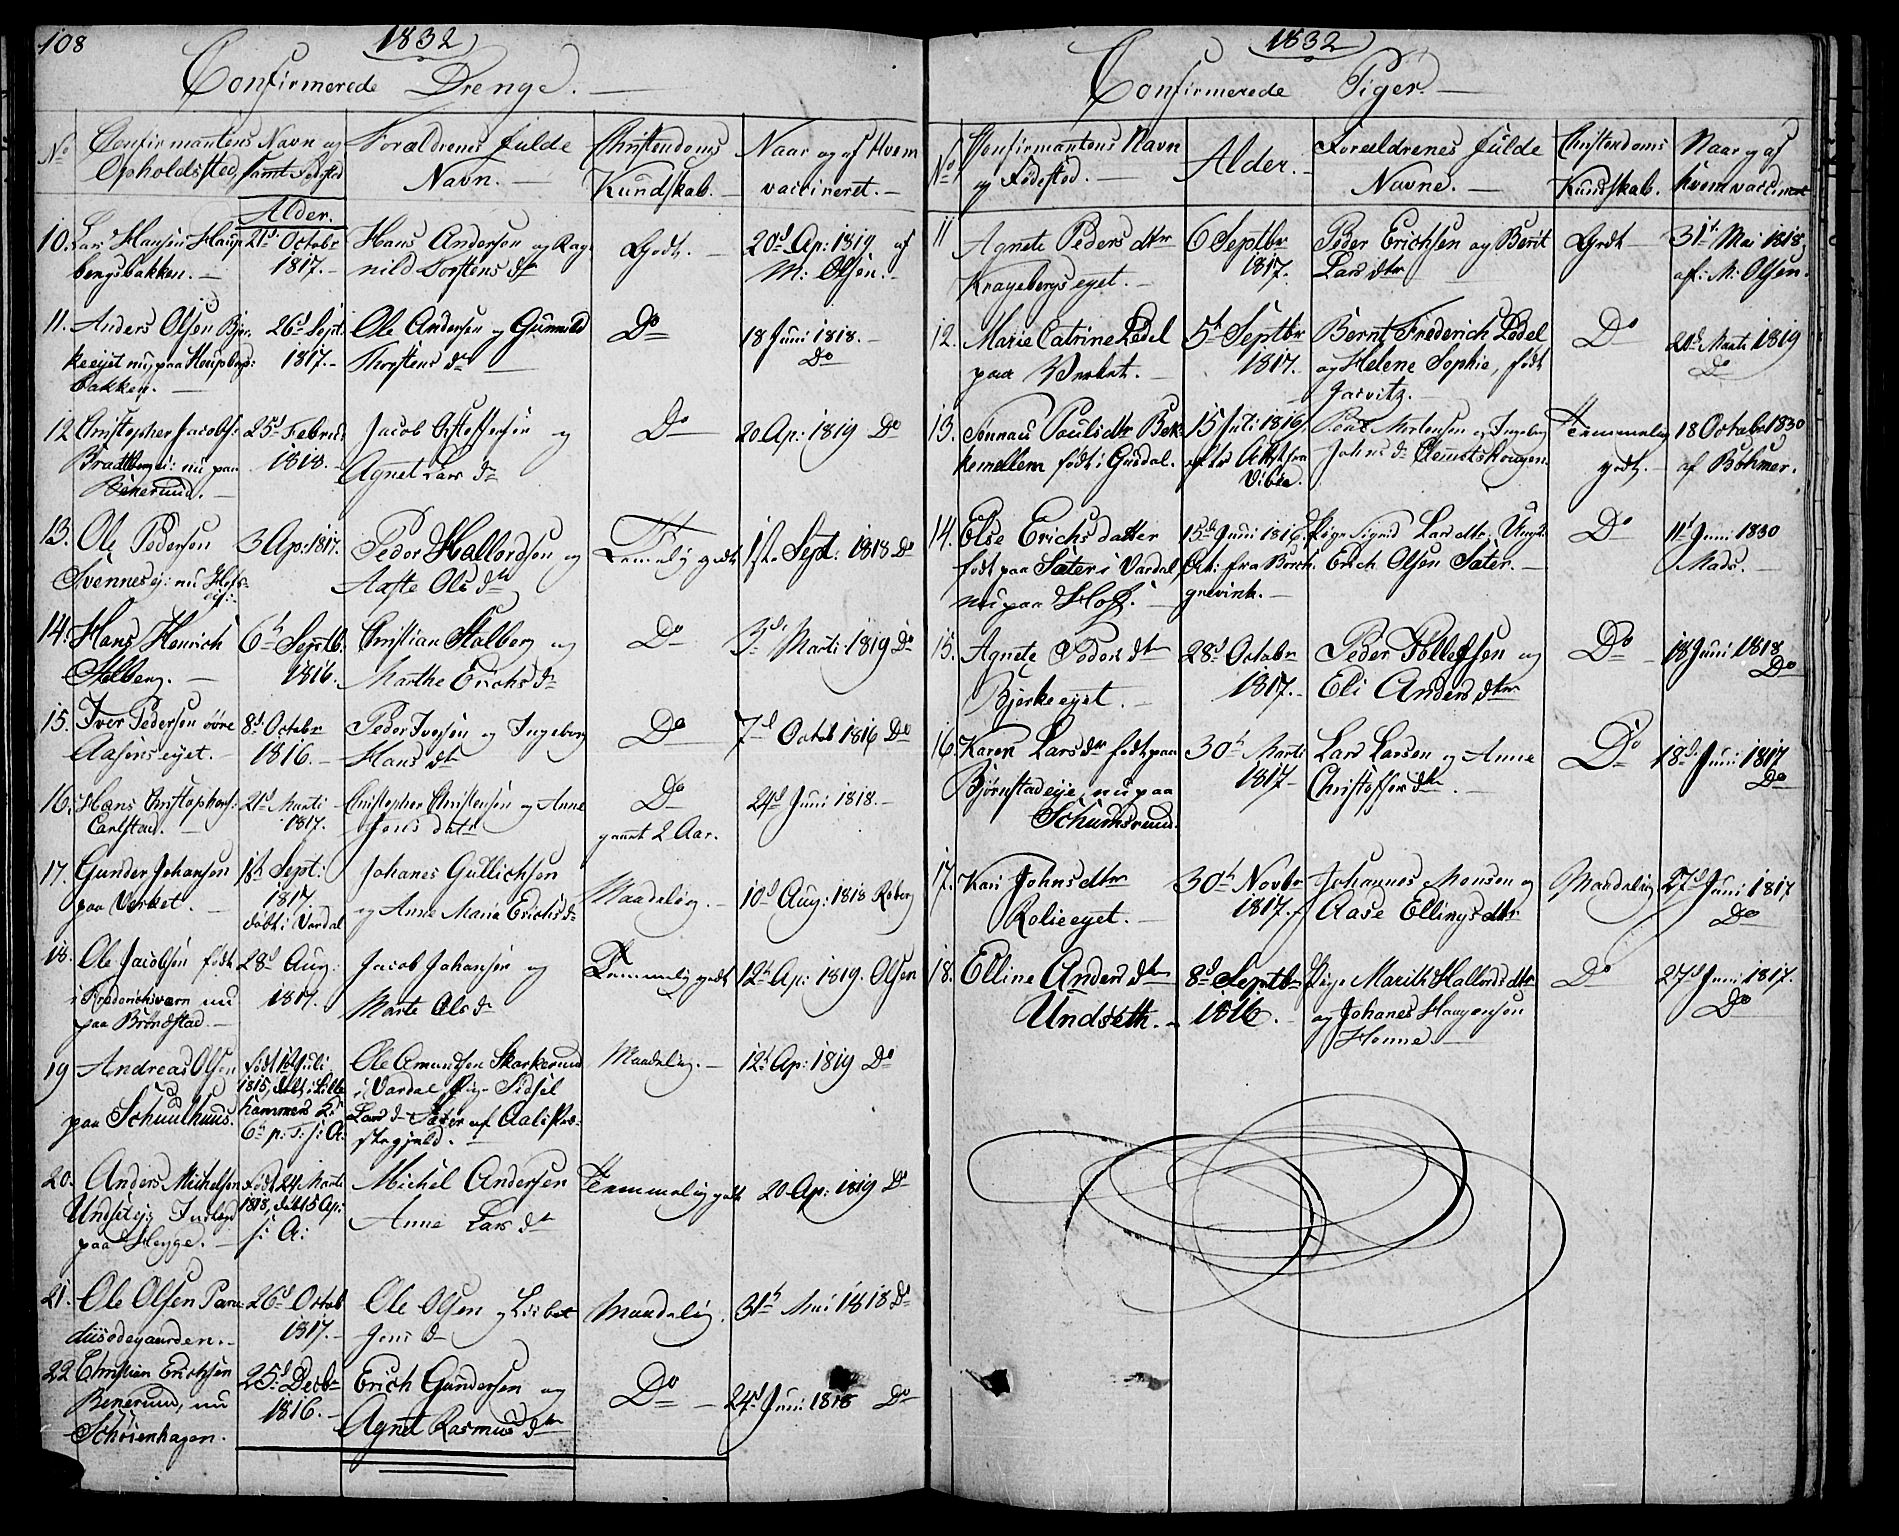 108
1832
Confirmerede Drenge.
No
Confirmantens Navn og
Opholdssted, samt Fødested
Alder.
Forældrenes fulde
Navn.
Christendoms
Kundskab.
Naar og af Hvem
vaccineret.
10. Lars Hansen Haup
bergsbakken.
21d Octobr
1817.
Hans Andersen og Rag-
nild Torstens dtr
Godt.
20d Ap: 1819 af
M: Olsen.
11. Anders Olsen Bjer-
keeyet nu paa Haupbergs
bakken.
26d Sept.
1817.
Ole Andersen og Gunnild
Thorstens dr
Do
18 Juni 1818.
Do
12 Christopher Jacobs:
Bradtberg ei: nu paa
Benerund.
25d Februa
1818.
Jacob Christoffersen og
Agnet Lars dr
Do
20 Ap: 1819 Do
13. Ole Pedersen
Svennes ej: nu Hofs-
ej:
3 Ap: 1817.
Peder Hallordsen og
Aaste Ols dr
Temmelig godt
1ste Sept: 1818 Do
14. Hans Henrich
Stalberg.
6te Septb.
1816.
Christian Stalberg og
Marthe Erichs dr
Do
3d Marti 1819 Do
15. Iver Pedersen øvre
Aasens eyet.
8d Octobr
1816.
Peder Iversen og Ingeborg
Hans dtr
Do
7d Octob 1816 Do
16. Hans Christophers:
Carlstad.
21d Marti
1817.
Christopher Christensen og Anne
Jens datr
Do
gaaet 2 Aar.
24d Juni 1818.
17. Gunder Johansen
paa Verket.
1ste Sept:
1817.
døbt i Vardal
Johanes Gullichsen
og Anne Maria Erichs dr
Maadelig.
10d Aug: 1818 Røberg
18. Ole Jacobsen født
i Frederichsværn nu
paa Brøndstad.
28d Aug:
1817.
Jacob Johansen og
Marte Ols dr
Temmelig godt
12te Ap: 1819. Olsen
19 Andreas Olsen
paa Schuulhuus.
født 16 Juli
1815, døbt i Lille
hammers K.
6te p: T: s: A:
Ole Amundsen Skarkerud
i Vardal Pige Sidsel
Lars dr Sæter af
stegjeld.
Maadelig.
12te Ap: 1819 Do
20. Anders Michelsen
Undsetej: Inderst
paa Hygge.
født 24 Marti
1818, døbt 5 Ap:
s: A:
Michel Andersen
Anne Lars dtr
Temmelig godt
20 Ap: 1819 Do
21. Ole Olsen Para-
diisødegaarden.
26d Octob
1817.
Ole Olsen og Lisbet
Jens dr
Maadelig.
31te Mai 1818 Do
22 Christian Erichsen
Benerund, nu
Schøienhagen.
25d Decbr
1816.
Erich Gundersen og
Agnet Rasmus dtr
Do
24d Juni 1818 Do
1832
Confirmerede Piger.
No
Confirmantens Navn
og Fødested.
Alder.
Forældrenes fulde
Navne.
Christendoms
Kundskab.
Naar og af
hvem vaccineret
11
Agnete Peders dtr
Kragebergs eyet.
6 Septbr
1817.
Peder Erichsen og Berit
Lars dtr
Godt
31te Mai 1818,
af: M: Olsen.
12. Marie Catrine Ledel
paa Verket.
5te Septbr
1817.
Bernt Frederich Ledel
og Helene Sophie, født
Jarvitz.
Do
21d Marti 1819
Do
13. Pouls dtr Bek-
kemellem født i Gusdal.
15 Juli 1816,
efter Attest fra
Vibea.
Poul Mortensen og Ingebor
Johns dr Clemetshougen
Temmelig
godt.
18 Octobr 1830
af Bohmer.
14. Else Erichs datter
født paa Sæter i Vardal
nu paa Hoff.
15de Juni 1816,
Att: fra Borch-
grevink.
Pige Sigrid Lars dtr, Ungk.
Erich Olsen Sæter.
Do
11te Juni 1830
Mads.
15. Agnete Peders dtr
Bjerkeeyet.
28d Octobr
1817.
Peder Pollefsen og
Eli Anders dtr
Do
18 Juni 1818
Do
16. Karen Lars dtr født paa
Bjørnstadeie, nu paa
Schumsrund.
30te Marti
1817
Lars Larsen og Anne
Christoffers dtr
Do
18d Juni 1817
Do
17. Kari Johns dtr
Rolieeyet.
30te Novbr
1817.
Johannes Monsen og
Aase Ellings dtr
Maadelig
27d Juni 1817
Do
18. Elline Anders dtr
Undseth.
8d Septbr
1816.
Pige Marith Hallords dtr
og Johanes Haagensen
Honne.
Do
27d Juni 1817.
Do